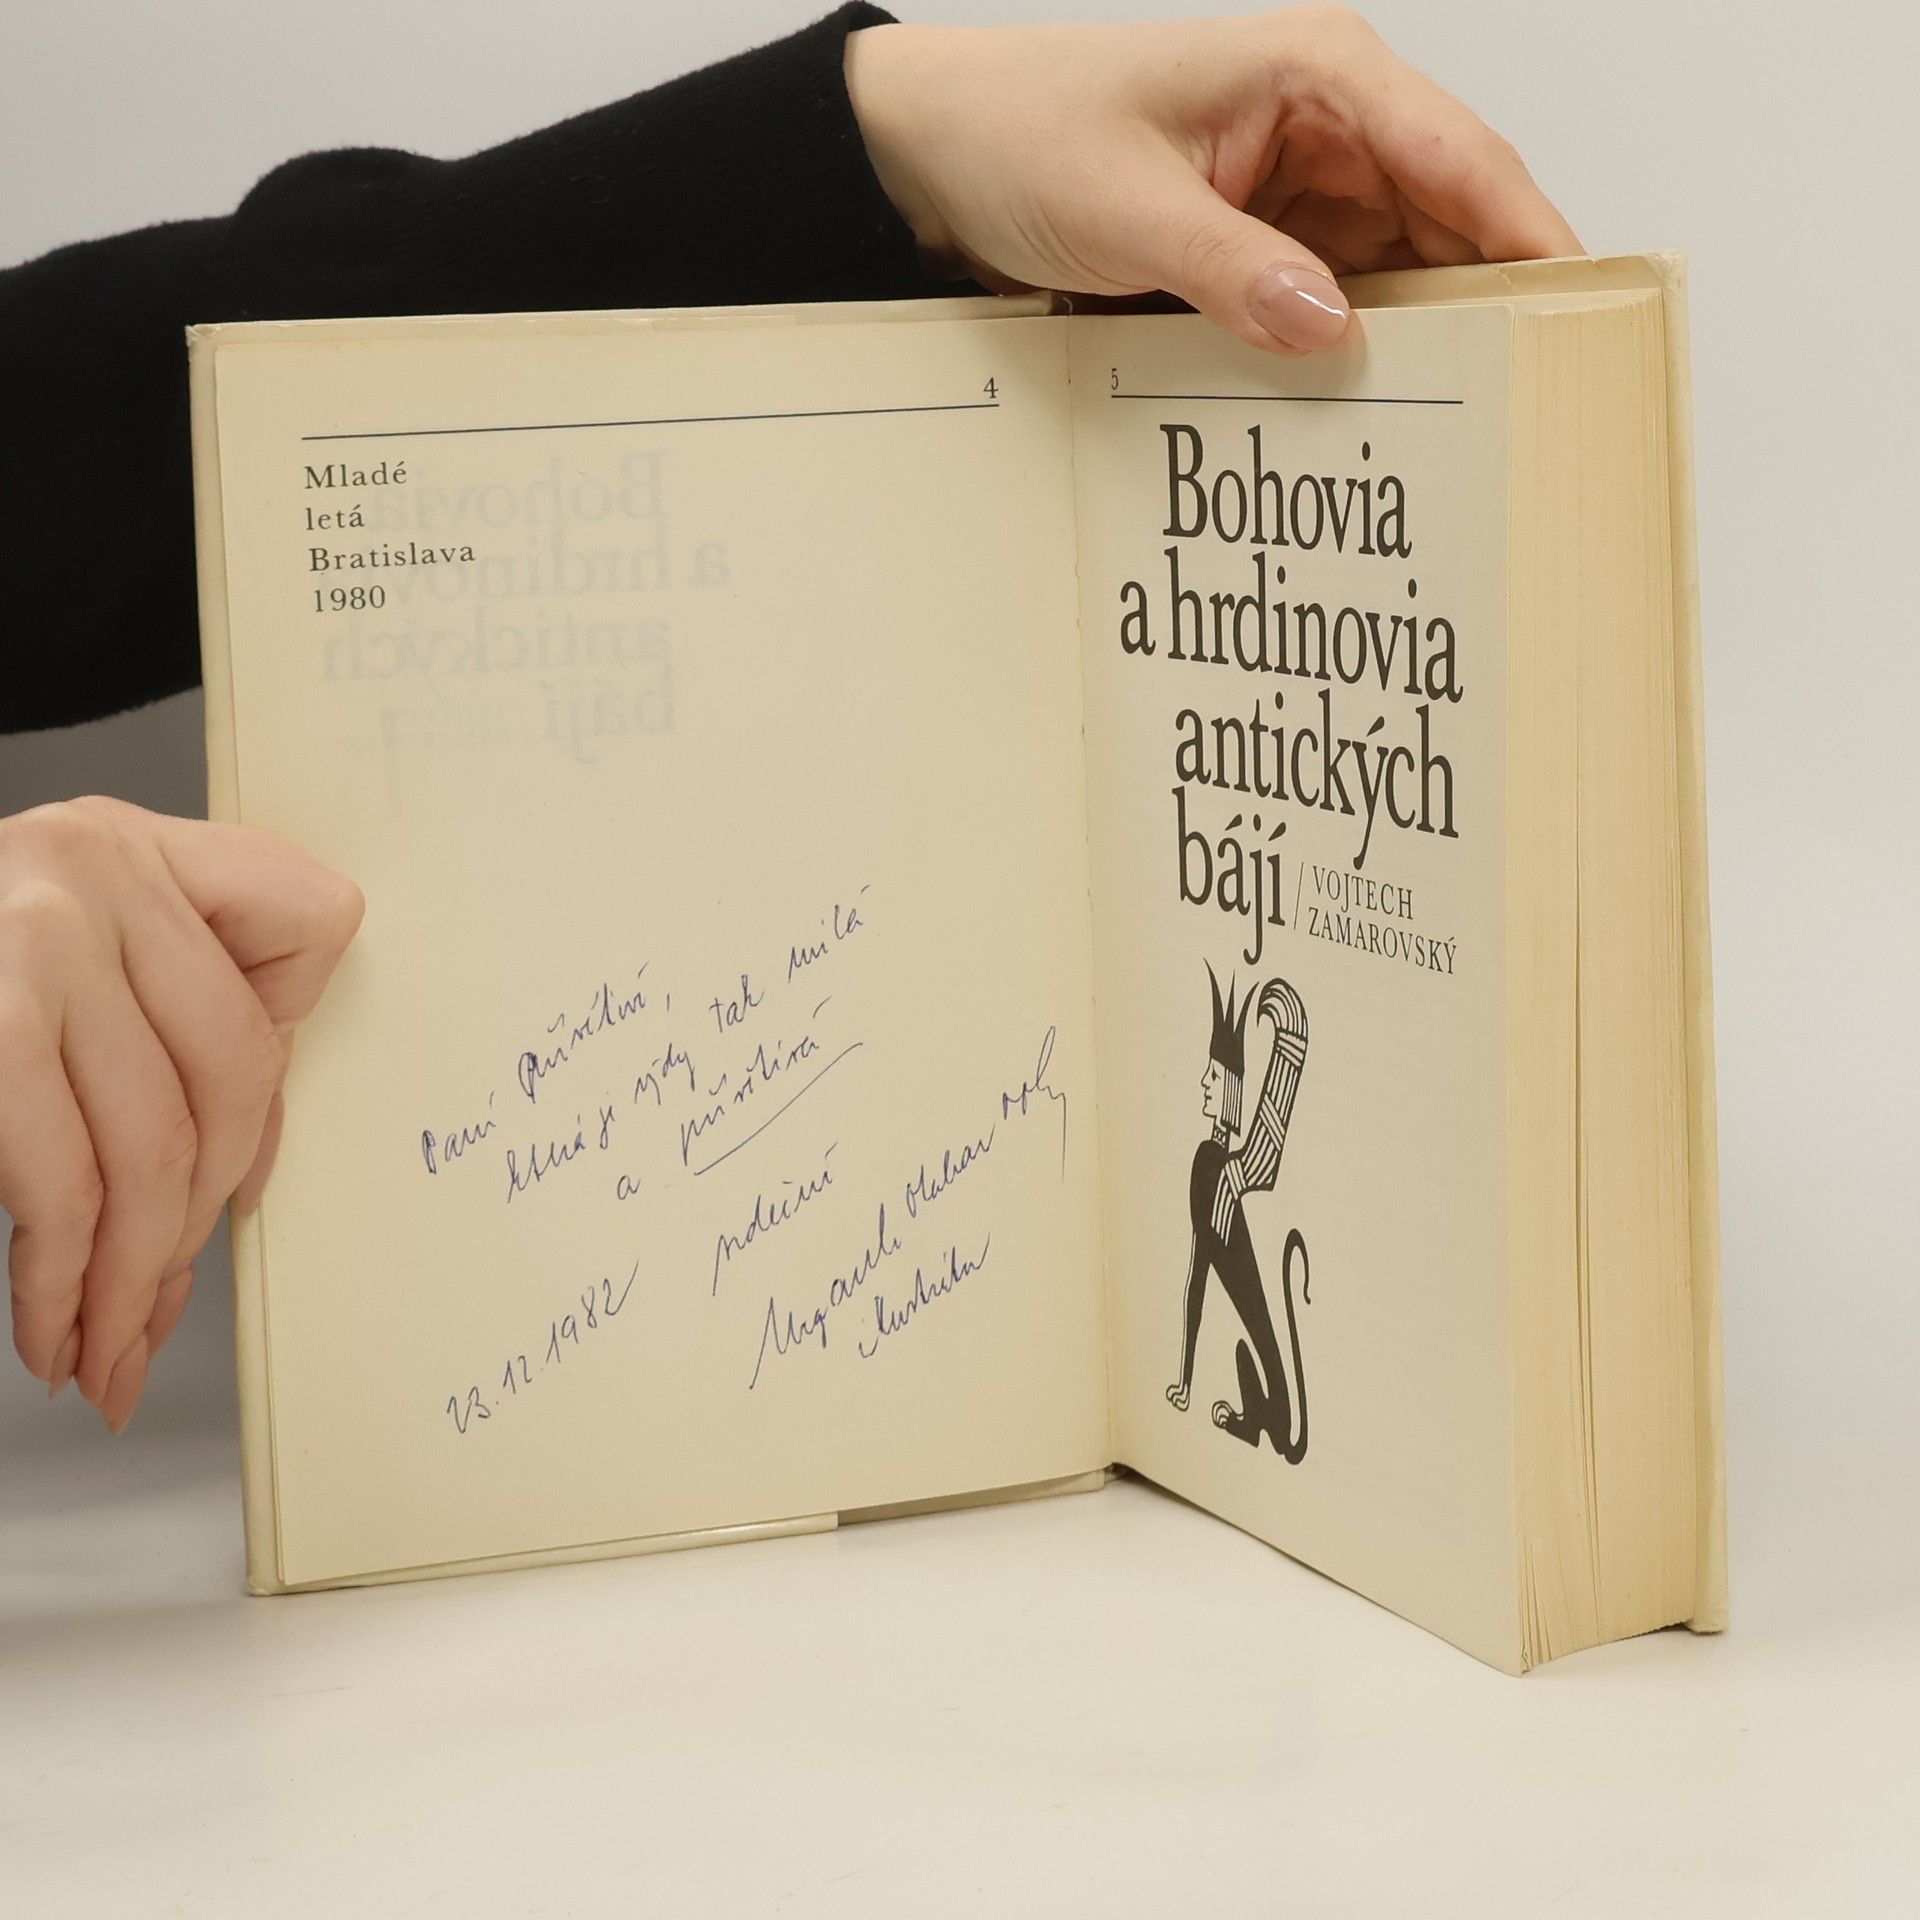 4
Mladé
letá
Bratislava
1980
Paní Půvitiví,
která je vždy tak milá
a přívětivá
srdeční
23.12.1982
5
Bohovia
a hrdinovia
antických
bájí
/ VOJTECH
ZAMAROVSKÝ